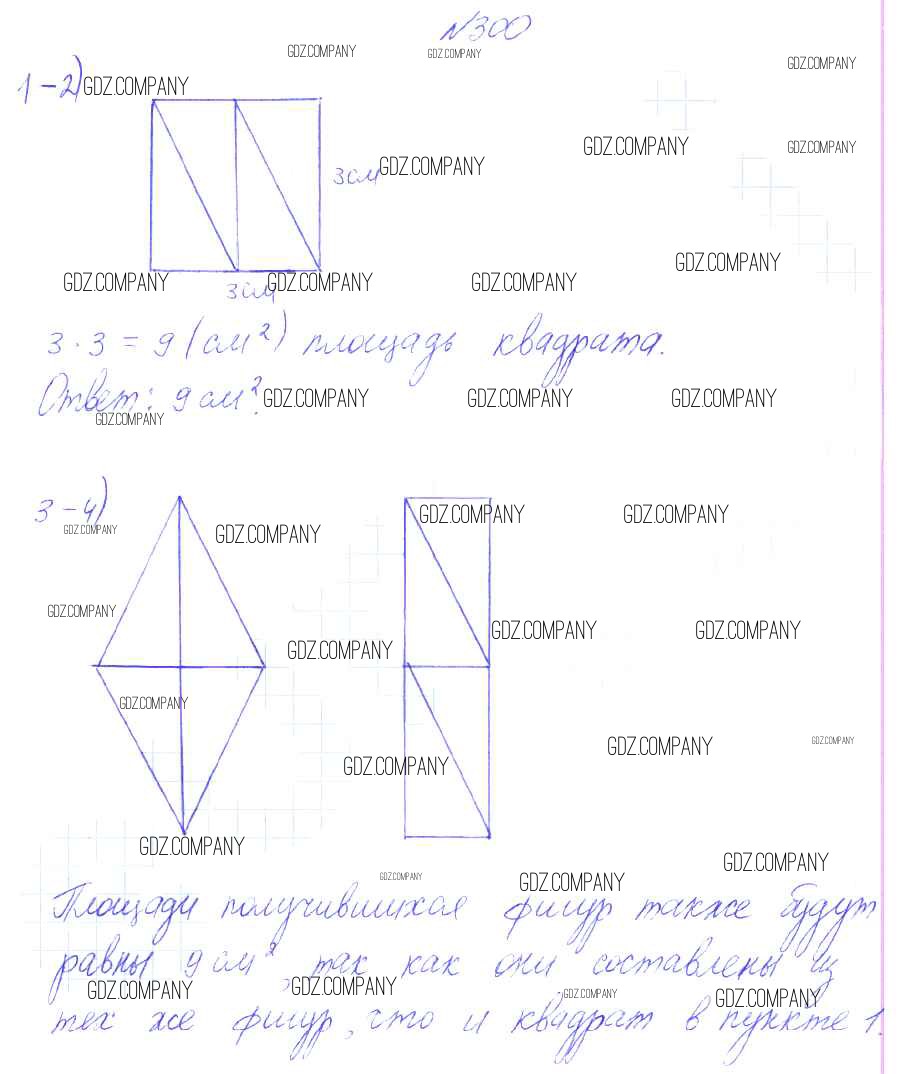 №300
GDZ.COMPANY GDZ.COMPANY GDZ.COMPANY
1-2) GDZ.COMPANY
GDZ.COMPANY GDZ.COMPANY GDZ.COMPANY
3см
GDZ.COMPANY GDZ.COMPANY GDZ.COMPANY GDZ.COMPANY
3см
3 · 3 = 9 (см²) площадь квадрата.
Ответ: 9 см².
GDZ.COMPANY GDZ.COMPANY GDZ.COMPANY GDZ.COMPANY
3-4)
GDZ.COMPANY GDZ.COMPANY GDZ.COMPANY GDZ.COMPANY
GDZ.COMPANY GDZ.COMPANY GDZ.COMPANY GDZ.COMPANY
GDZ.COMPANY GDZ.COMPANY GDZ.COMPANY
GDZ.COMPANY
GDZ.COMPANY GDZ.COMPANY
GDZ.COMPANY GDZ.COMPANY
Площади получившихся фигур также будут
равны 9 см², так как они составлены из
GDZ.COMPANY GDZ.COMPANY GDZ.COMPANY GDZ.COMPANY
тех же фигур, что и квадрат в пункте 1.